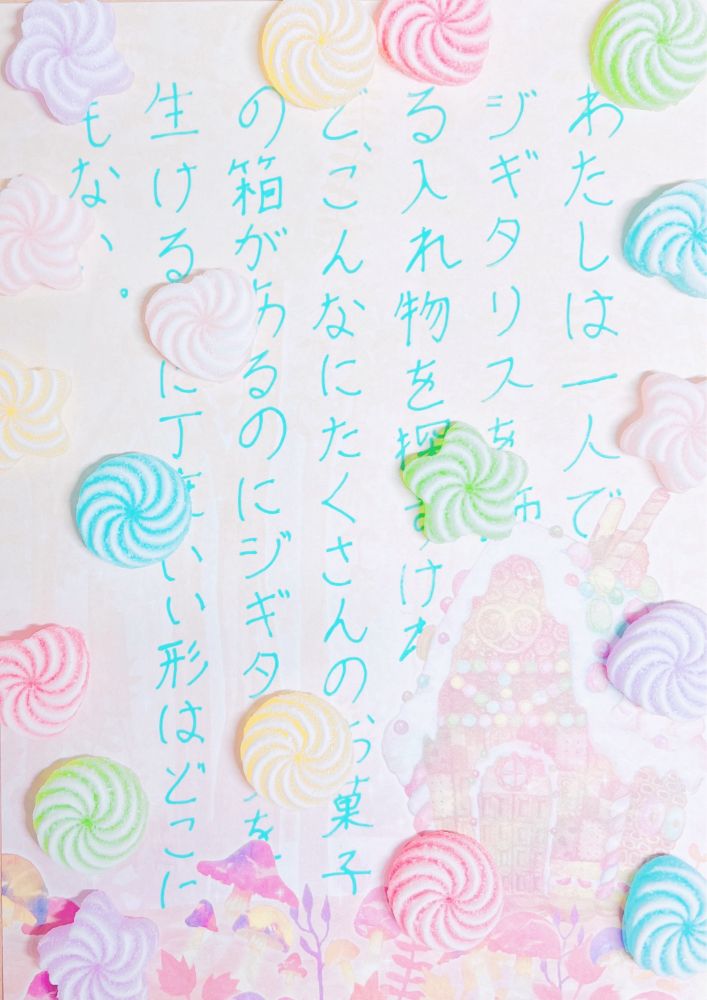 わたしは一人で
ジギタリスを飾
る入れ物を探すけれ
ど、こんなにたくさんのお菓子
の箱があるのにジギタ を
生ける に丁度いい形はどこに
もない。